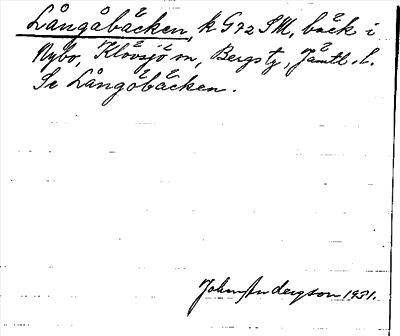 Långåbäcken, k G72 SM, bäck i
Nybo, Klövsjö sn, Bergs tg, Jämtl. l.
Se Långöbäcken.
John Andergson 1931.